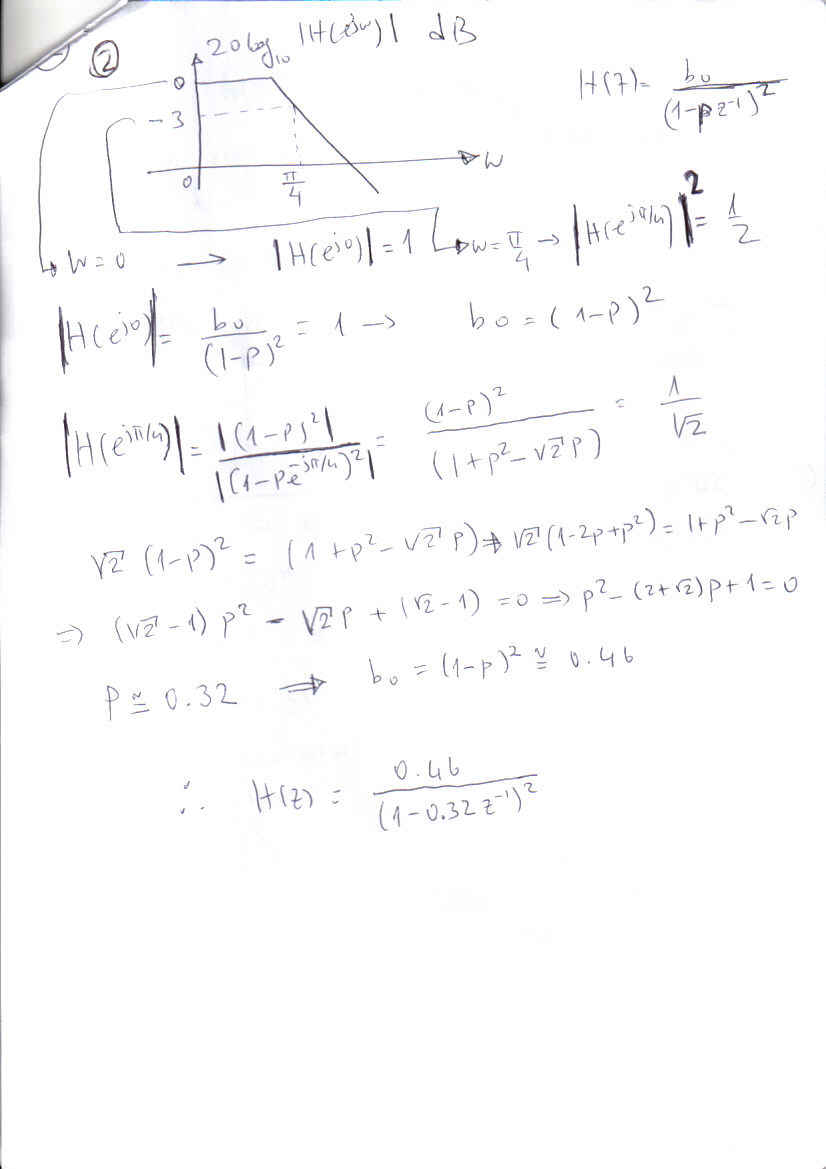 ②
20 log₁₀ |H(e^jω)| dB
H(z) = b₀ / (1-pz⁻¹)²
0
-3
0 π/4 w
w = 0 → |H(e^j0)| = 1 w = π/4 → |H(e^jπ/4)|² = 1/2
|H(e^j0)| = b₀ / (1-p)² = 1 → b₀ = (1-p)²
|H(e^jπ/4)| = |(1-p)²| / |(1-pe^-jπ/4)²| = (1-p)² / (1+p²-√2 p) = 1/√2
√2 (1-p)² = (1+p²-√2 p) ⇒ √2 (1-2p+p²) = 1+p²-√2p
⇒ (√2-1) p² - √2 p + (√2-1) = 0 ⇒ p² - (2+√2)p + 1 = 0
p ≅ 0.32 ⇒ b₀ = (1-p)² ≅ 0.46
∴ H(z) = 0.46 / (1-0.32 z⁻¹)²